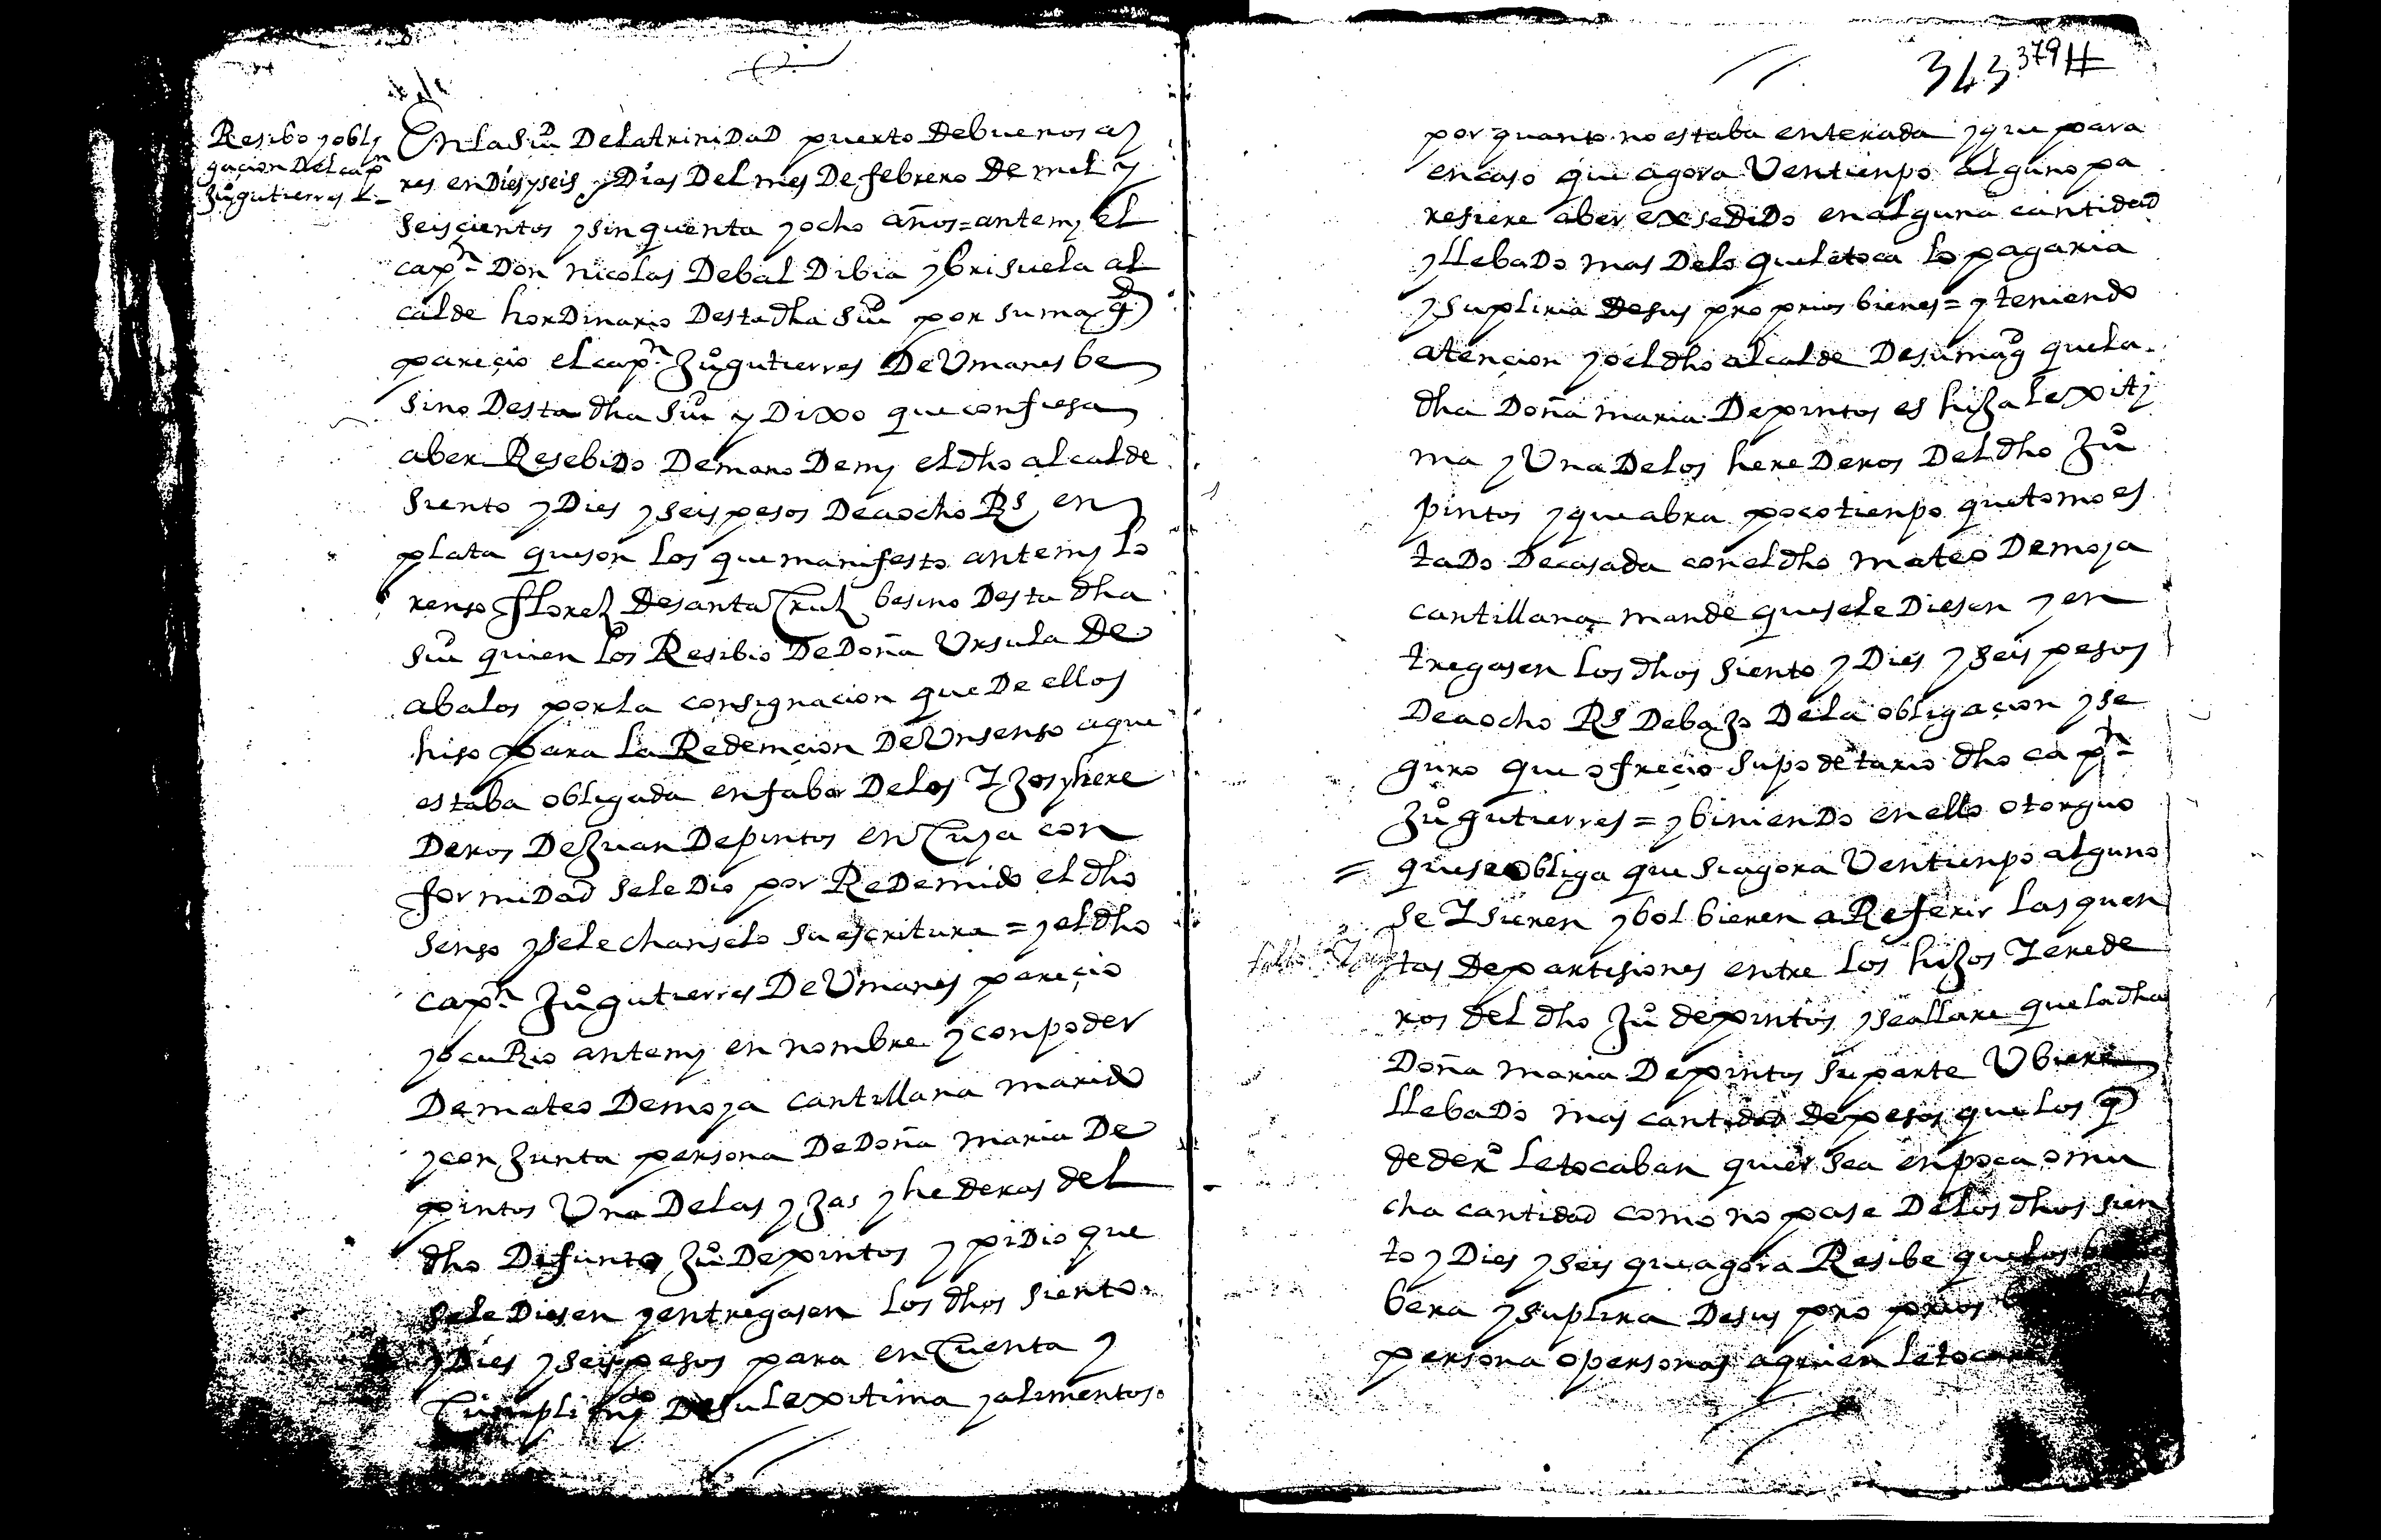 Resibo y obli
gacion Del capn
Juo gutierres d
En la Siud De la trinidad puerto De buenos ay
res en Dies y seis Dias Del mes De febrero De mil y
Seiscientos y sinquenta y ocho años = ante my el
capn Don nicolas De bal Dibia y brisuela al
calde hordinario Desta dha Siud por su magd
parecio el capn Juo gutierres De Umanes be
sino Desta dha Siud y Dixo que confiesa
aber Resebido De mano De my el dho alcalde
siento y Dies y seis pesos De a ocho Rs en
plata que son los que manifesto ante my lo
renso florez De santa Cruz besino Desta dha
Siud quien los Resibio De Doña Ursula De
abalos por la consignacion que De ellos
hiso para la Redemcion De Un senso a que
estaba obligada en fabor De los Ijos y here
Deros De Juan De pintos en Cuya con
formidad se le Dio por Redemido el dho
senso y se le chanselo su escritura = y el dho
capn Juo gutierres De Umanes parecio
y ocuRio ante my en nombre y con poder
De mateo De moya cantillana marido
y conjunta persona De Doña maria De
pintos Una De las yjas y hederas del
dho Difunto Juo De pintos y pidio que
se le Diesen y entregasen los dhos siento
y Dies y seis pesos para en Cuenta y
Cumplimyto De su lexitima y alimentos
343 379
por quanto no estaba enterada y que para
en caso que agora U en tienpo alguno pa
resiere aber exsedido en alguna cantidad
y llebado mas De lo que le toca lo pagaria
y supliria De sus proprios bienes = y teniendo
atencion yo el dho alcalde De su magd que la
dha Doña maria De pintos es hija lexiti
ma y Una De los herederos Del dho Juo
pintos y que abra poco tienpo que tomo es
tado De casada con el dho mateo De moya
cantillana mande que se le Diesen y en
tregasen los dhos siento y Dies y seis pesos
De a ocho Rs Debajo De la obligacion y se
guro que ofrecio su podetario dho capn
Juo gutierres = y biniendo en ello otorguo
= que se obliga que si agora U en tienpo alguno
se Isieren y bolbieren a Referir las quen
tas De partisiones entre los hijos I erede
ros del dho Juo de pintos y se allare que la dha
Doña maria De pintos su parte Ubiere
llebado mas cantidad de pesos que los q
de dero le tocaban quier sea en poca o mu
cha cantidad como no pase De los dhos sien
to y Dies y seis que agora Resibe que los
bera y suplira De sus proprios
persona o personas a quien le